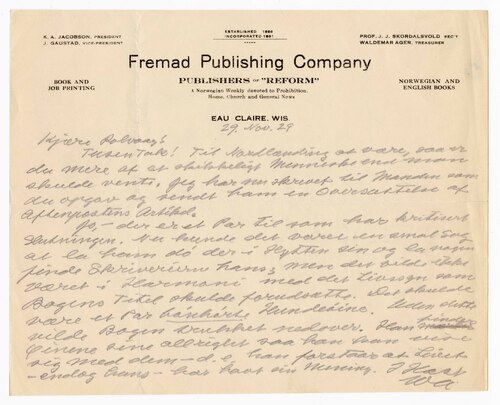 K. A. JACOBSON, PRESIDENT
J. GAUSTAD, VICE-PRESIDENT
ESTABLISHED 1886
INCORPORATED 1891
PROF. J. J. SKORDALSVOLD SEC'Y
WALDEMAR AGER, TREASURER
Fremad Publishing Company
BOOK AND
JOB PRINTING
PUBLISHERS OF "REFORM"
A Norwegian Weekly devoted to Prohibition,
Home, Church and General News
NORWEGIAN AND
ENGLISH BOOKS
EAU CLAIRE, WIS.
29. Nov. 29
Kjære Rolvaag!
Tusen Tak! Til Nordlænding at være, saa er
du mere af et skikkeligt Menneske end man
skulde vente. Jeg har nu skrevet til Manden som
du opgav og sendt ham en Oversættelse af
Aftenpostens Artikel.
Jo, - der er et Par til som har kritisert
Slutningen. Nu kunde det være en smal Sag
at la ham dø der i Hytten sin og la nogen
finde Skriverierne hans, men det vilde ikke
været i Harmoni med det Livssyn som
Bogens Titel skulde forudsætte. Det skulde
være et Par Hundeøine. Uden dette
vilde Bogen trukket nedover. Han
Øinene sine allright saa han kan
sig med dem - d.e. han forstaar at Livet
- endog hans - har havt sin Mening. I Hast
WA